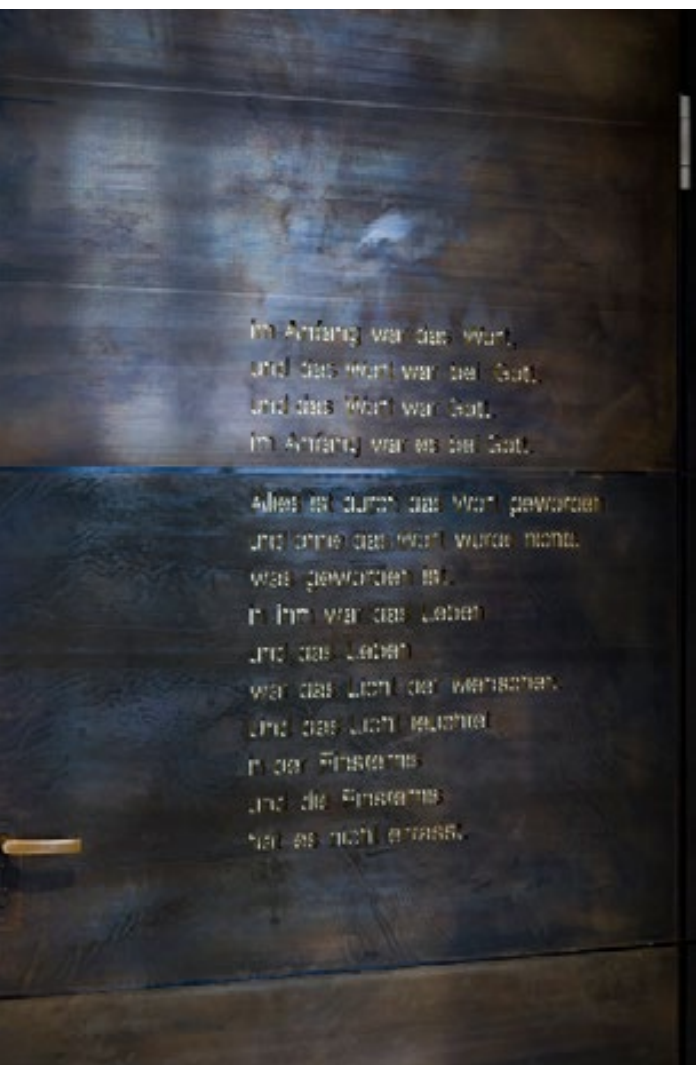 Im Anfang war das Wort,
und das Wort war bei Gott,
und das Wort war Gott.
Im Anfang war es bei Gott.
Alles ist durch das Wort geworden
und ohne das Wort wurde nichts,
was geworden ist.
In ihm war das Leben
und das Leben
war das Licht der Menschen.
Und das Licht leuchtet
in der Finsternis
und die Finsternis
hat es nicht erfasst.